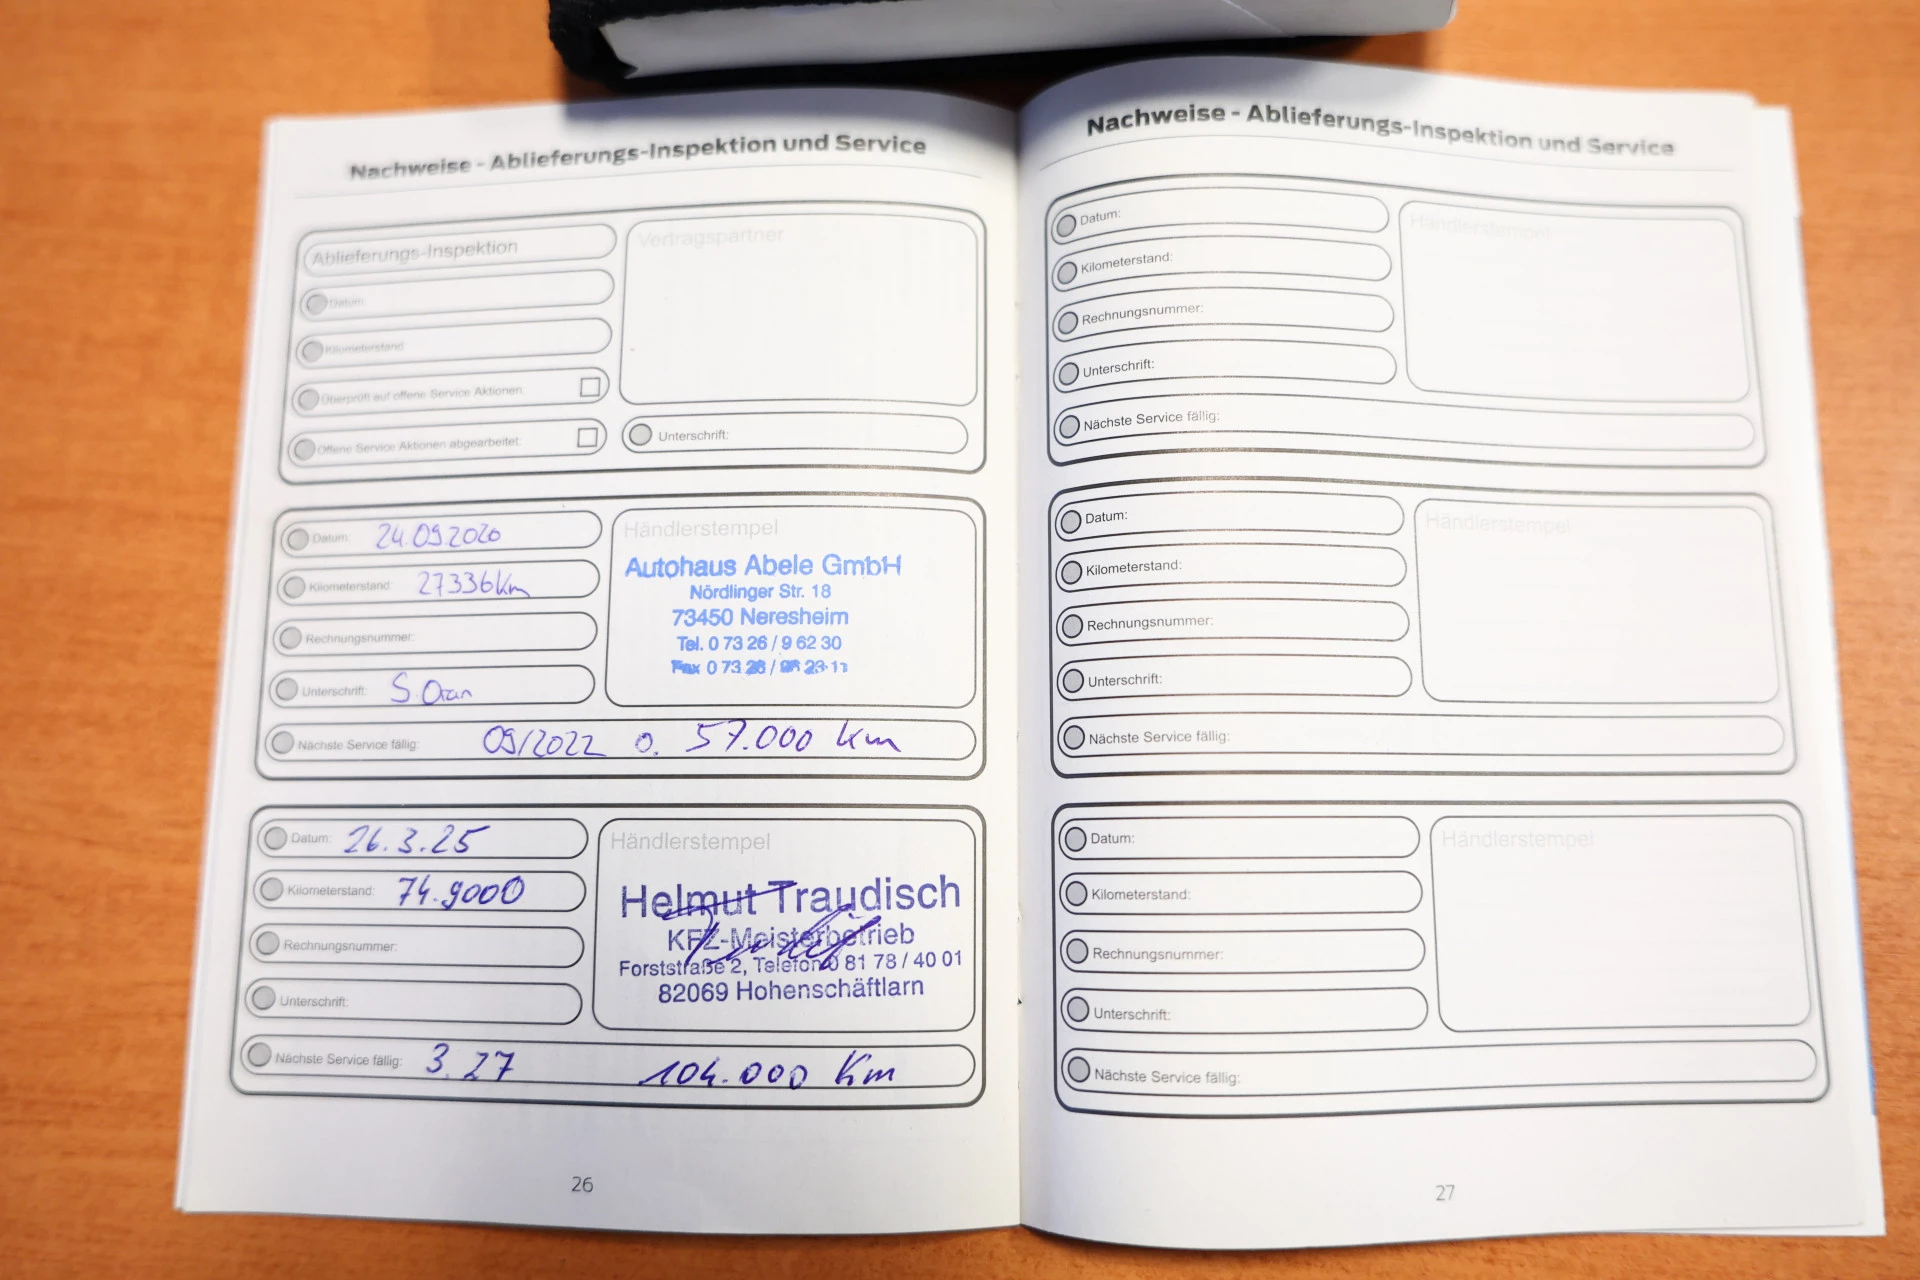 Nachweise - Ablieferungs-Inspektion und Service
Ablieferungs-Inspektion
Datum:
Kilometerstand:
Überprüft auf offene Service Aktionen:
Offene Service Aktionen abgearbeitet:
Vertragspartner
Unterschrift:
Datum: 24.09.2020
Kilometerstand: 27336km
Rechnungsnummer:
Unterschrift: S.
Händlerstempel
Autohaus Abele GmbH
Nördlinger Str. 18
73450 Neresheim
Tel. 0 73 26 / 9 62 30
Fax 0 73 26 /
Nächste Service fällig: 09/2022 o. 57.000 km
Datum: 26.3.25
Kilometerstand: 74.9000
Rechnungsnummer:
Unterschrift:
Händlerstempel
Helmut Traudisch
KFZ-Meisterbetrieb
Forststraße 2, Telefon 0 81 78 / 40 01
82069 Hohenschäftlarn
Nächste Service fällig: 3.27 104.000 Km
26
Nachweise - Ablieferungs-Inspektion und Service
Datum:
Kilometerstand:
Rechnungsnummer:
Unterschrift:
Händlerstempel
Nächste Service fällig:
Datum:
Kilometerstand:
Rechnungsnummer:
Unterschrift:
Händlerstempel
Nächste Service fällig:
Datum:
Kilometerstand:
Rechnungsnummer:
Unterschrift:
Händlerstempel
Nächste Service fällig:
27